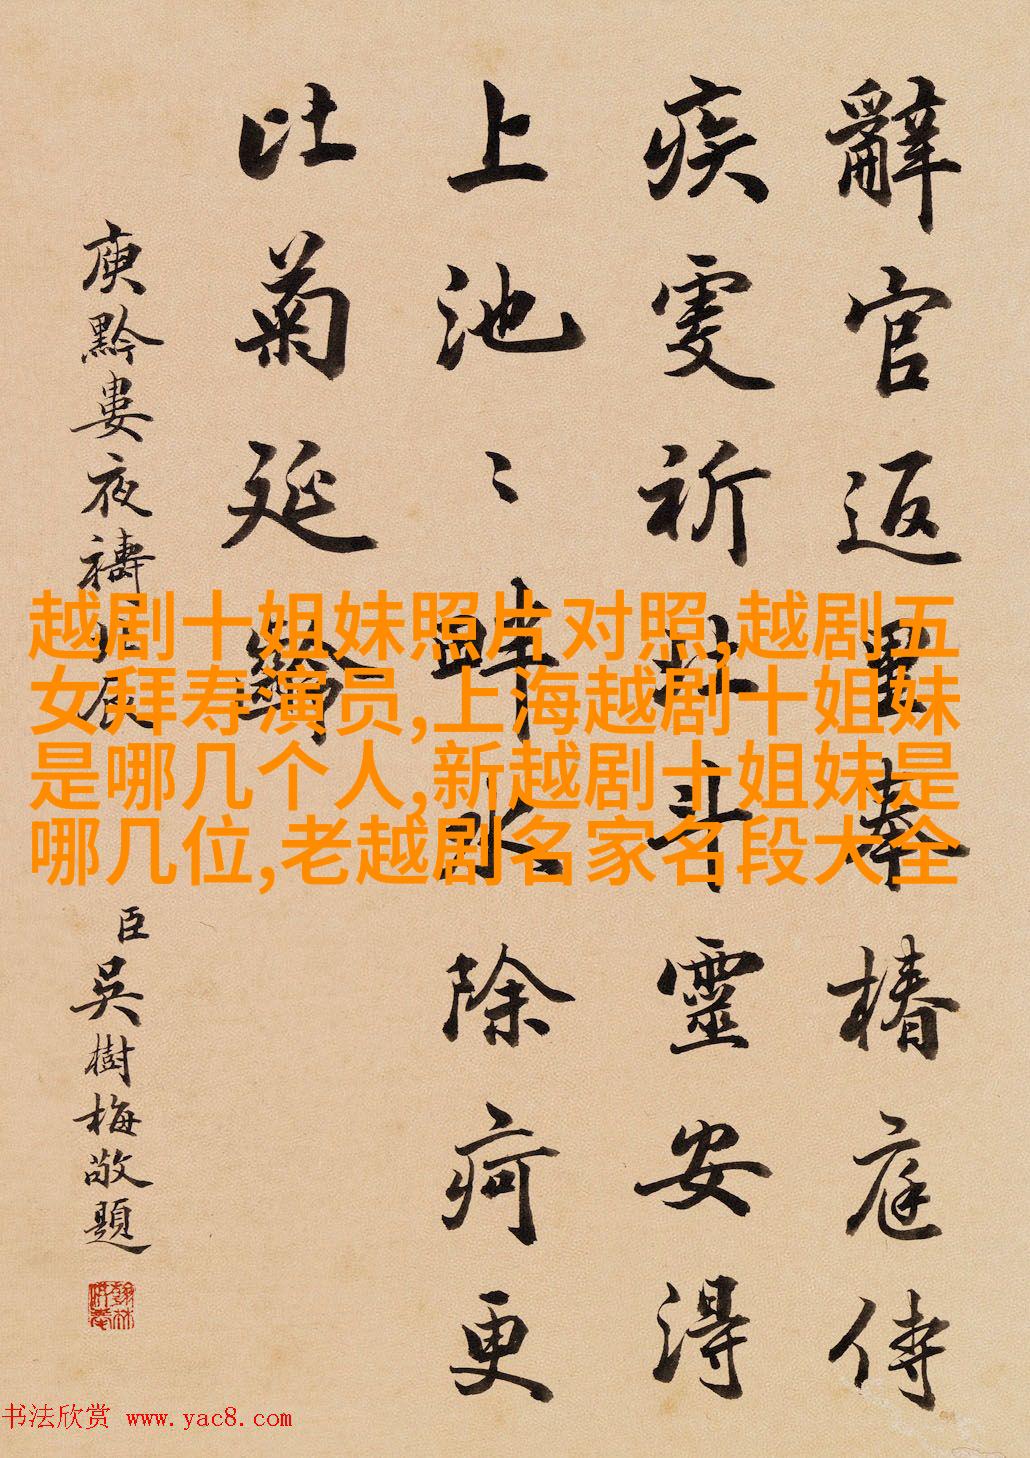 辭官返里奉椿庭侍
疾虔祈北斗靈安得
上池〻畔水除疴更
比菊延齡
庾黔婁夜禱北辰
臣吳樹梅敬題
越剧十姐妹照片对照,越剧五
女拜寿演员,上海越剧十姐妹
是哪几个人,新越剧十姐妹是
哪几位,老越剧名家名段大全
书法欣赏 www.yac8.com